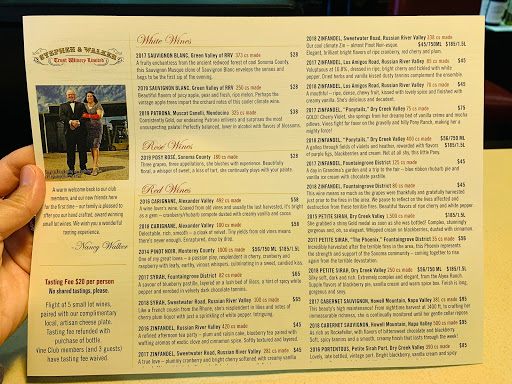 STEPHEN & WALKER
Trust Winery Limited
A warm welcome back to our club
members, and our new friends here
for the first time – our family is pleased to
offer you our hand crafted, award winning
small lot wines. We wish you a wonderful
tasting experience.
-Nancy Walker
Tasting Fee $20 per person
No shared tastings, please.
Flight of 5 small lot wines,
paired with our complimentary
local, artisan cheese plate.
Tasting fee refunded with
purchase of bottle.
Wine Club members (and 3 guests)
have tasting fee waived.
White Wines
2017 SAUVIGNON BLANC, Green Valley of RRV 373 cs made $28
A fruity enchantment from the ancient redwood forest of cool Sonoma County,
this Sauvignon Musque clone of Sauvignon Blanc envelops the senses and
begs to be the first sip of the evening.
2018 SAUVIGNON BLANC, Green Valley of RRV 250 cs made $28
Beautiful flavors of juicy apple, pear and fresh, ripe melon. Perhaps the
vintage apple trees impart the orchard notes of this cooler climate wine.
2018 PATRONA, Muscat Canelli, Mendocino 325 cs made $36
Consistently Gold, our endearing Patrona enlivens and surprises the most
unsuspecting palate! Perfectly balanced, lover in alcohol with flavors of blossoms.
Rosé Wines
2018 POSY ROSE, Sonoma County 180 cs made $28
Three grapes, three appellations, she blushes with experience. Beautifully
floral, a whisper of sweet, a kiss of tart, she continually plays with your palate.
Red Wines
2016 CARIGNANE, Alexander Valley 492 cs made $38
A wine lover's wine. Coaxed from old vines and usually the last harvested, it's bright
as a gem – cranberry/rhubarb compote dusted with creamy vanilla and cocoa
2018 CARIGNANE, Alexander Valley 100 cs made $38
Delectable, rich, smooth – a cloak of velvet. Tiny yields from old vines means
there's never enough. Enraptured, drop by drop.
2014 PINOT NOIR, Monterey County 1000 cs made $50/750 ML $185/1.5L
One of my great loves – a passion play, resplendent in cherry, cranberry and
raspberry with leafy, earthy, vinous whispers, culminating in a sweet, candied kiss.
2017 SYRAH, Fountaingrove District 82 cs made $65
A savour of blueberry pastille, layered on a lush bed of lilacs, a hint of spicy white
pepper and enrobed in velvety dark chocolate tannin.
2018 SYRAH, Sweetwater Road, Russian River Valley 100 cs made $65
Like a French cousin from the Rhone, she's resplendent in lilacs and notes of
cherry plum liquor with just a sprinkling of white pepper. Intriguing.
2016 ZINFANDEL, Russian River Valley 420 cs made $45
A refined afternoon tea party – plum and raisin cake, blueberry tea paired with
wafting aromas of exotic clove and cinnamon spice. Softly textured and layered.
2017 ZINFANDEL, Sweetwater Road, Russian River Valley 281 cs made $45
A true love – plummy cranberry and bright cherry softened with creamy vanilla
2018 ZINFANDEL, Sweetwater Road, Russian River Valley 336 cs made
Our cool climate Zin – almost Pinot Noir-esque $45/750ML $185/1.5L
Elegant, brilliant bright flavors of ripe cranberry, red cherry and plum.
2017 ZINFANDEL, Los Amigos Road, Russian Valley 85 cs made $45
Voluptuous at 16.8%, dressed in ripe, bright cherry and tackled with white
pepper. Dried herbs and vanilla kissed dusty tannins complement the ensemble
2018 ZINFANDEL, Los Amigos Road, Russian Valley 45 cs made $45
A mouthful – ripe, dense, chewy fruit, kissed with lively spice and finished with
creamy vanilla. She's delicious and decadent.
2017 ZINFANDEL, "Ponytails," Dry Creek Valley 75 cs made $75
GOLD! Cherry Violet, she springs from her dreamy bed of vanilla crème and mocha
pillows. Vines fight for favor on the gravelly and hilly Pony Ranch, making her a
mighty force!
2018 ZINFANDEL, "Ponytails," Dry Creek Valley 400 cs made $56/750 ML
A gallop through fields of violets and heather, rewarded with flavors $45 $185/1.5L
of purple figs, blackberries and cream. Not at all shy, this little Pony.
2017 ZINFANDEL, Fountaingrove District 125 cs made $45
A day in Grandma's garden and a trip to the fair – blue ribbon rhubarb pie and
vanilla ice cream with chocolate paratha.
2018 ZINFANDEL, Fountaingrove District 80 cs made $45
This wine means so much as the grapes were thankfully and gratefully harvested
just prior to the fires in the area. We pause to reflect on the lives affected and
destruction from these terrible fires. Beautiful flavors of ripe cherry and white pepper.
2015 PETITE SIRAH, Dry Creek Valley 1,500 cs made $45 $185/1.5L
She grabbed a shiny Gold medal as soon as she was bottled! Complex, stunningly
gorgeous and, oh, so elegant. Whipped cream on blackberries, dusted with cinnamon.
2017 PETITE SIRAH, "The Phoenix," Fountaingrove District 55 cs made $36
Incredibly harvested after the terrible fires in the area, this Phoenix represents
the strength and support of the Sonoma community – coming together to rise
again from the terrible devastation.
2018 PETITE SIRAH, Dry Creek Valley 250 cs made $56/750 ML $185/1.5L
Silky soft, dark and rich. Extremely complex and elegant, from the Alysa Ranch.
Supple flavors of blackberry pie, vanilla cream and warm spice box. Finish is long,
gorgeous and sexy.
2017 CABERNET SAUVIGNON, Howell Mountain, Napa Valley 381 cs made $95
This beauty's high maintenance! From nighttime harvest at 1400 ft. to crafting her
immeasurable richness, she is continually monitored until her cellar repose
2018 CABERNET SAUVIGNON, Howell Mountain, Napa Valley 500 cs made $95
As rich as Rockefeller, with flavors of bittersweet chocolate and blackberry.
Soft, spicy tannins and a smooth, creamy finish that lasts through the week!
2016 PORTENTIOUS, Petite Sirah Port, Dry Creek Valley 200 cs made $65
Lovely, late bottled, vintage port. Bright blackberry, vanilla cream and spicy